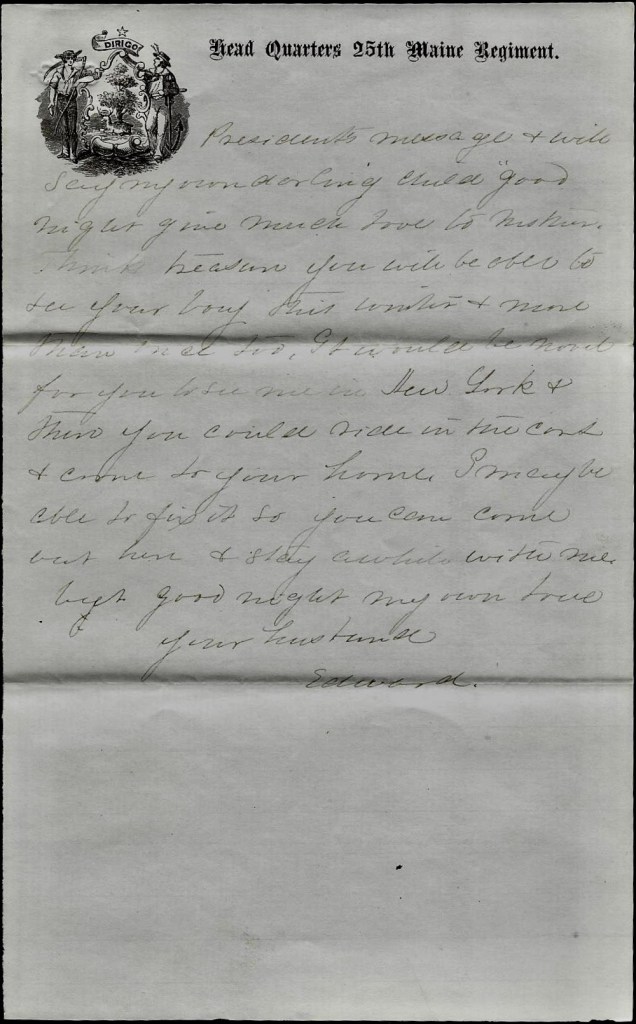 DIRIGO
Head Quarters 25th Maine Regiment.
Presidents message & will
say my own darling child "good
night give much love to Mother.
Think treasure you will be able to
see your boy this winter & more
than once too, It would be novel
for you to see me in New York &
then you could ride in the cars
& come to your home. I may be
able to fix it so you can come
out here & stay awhile with me.
but good night my own true
your husband
Edward.